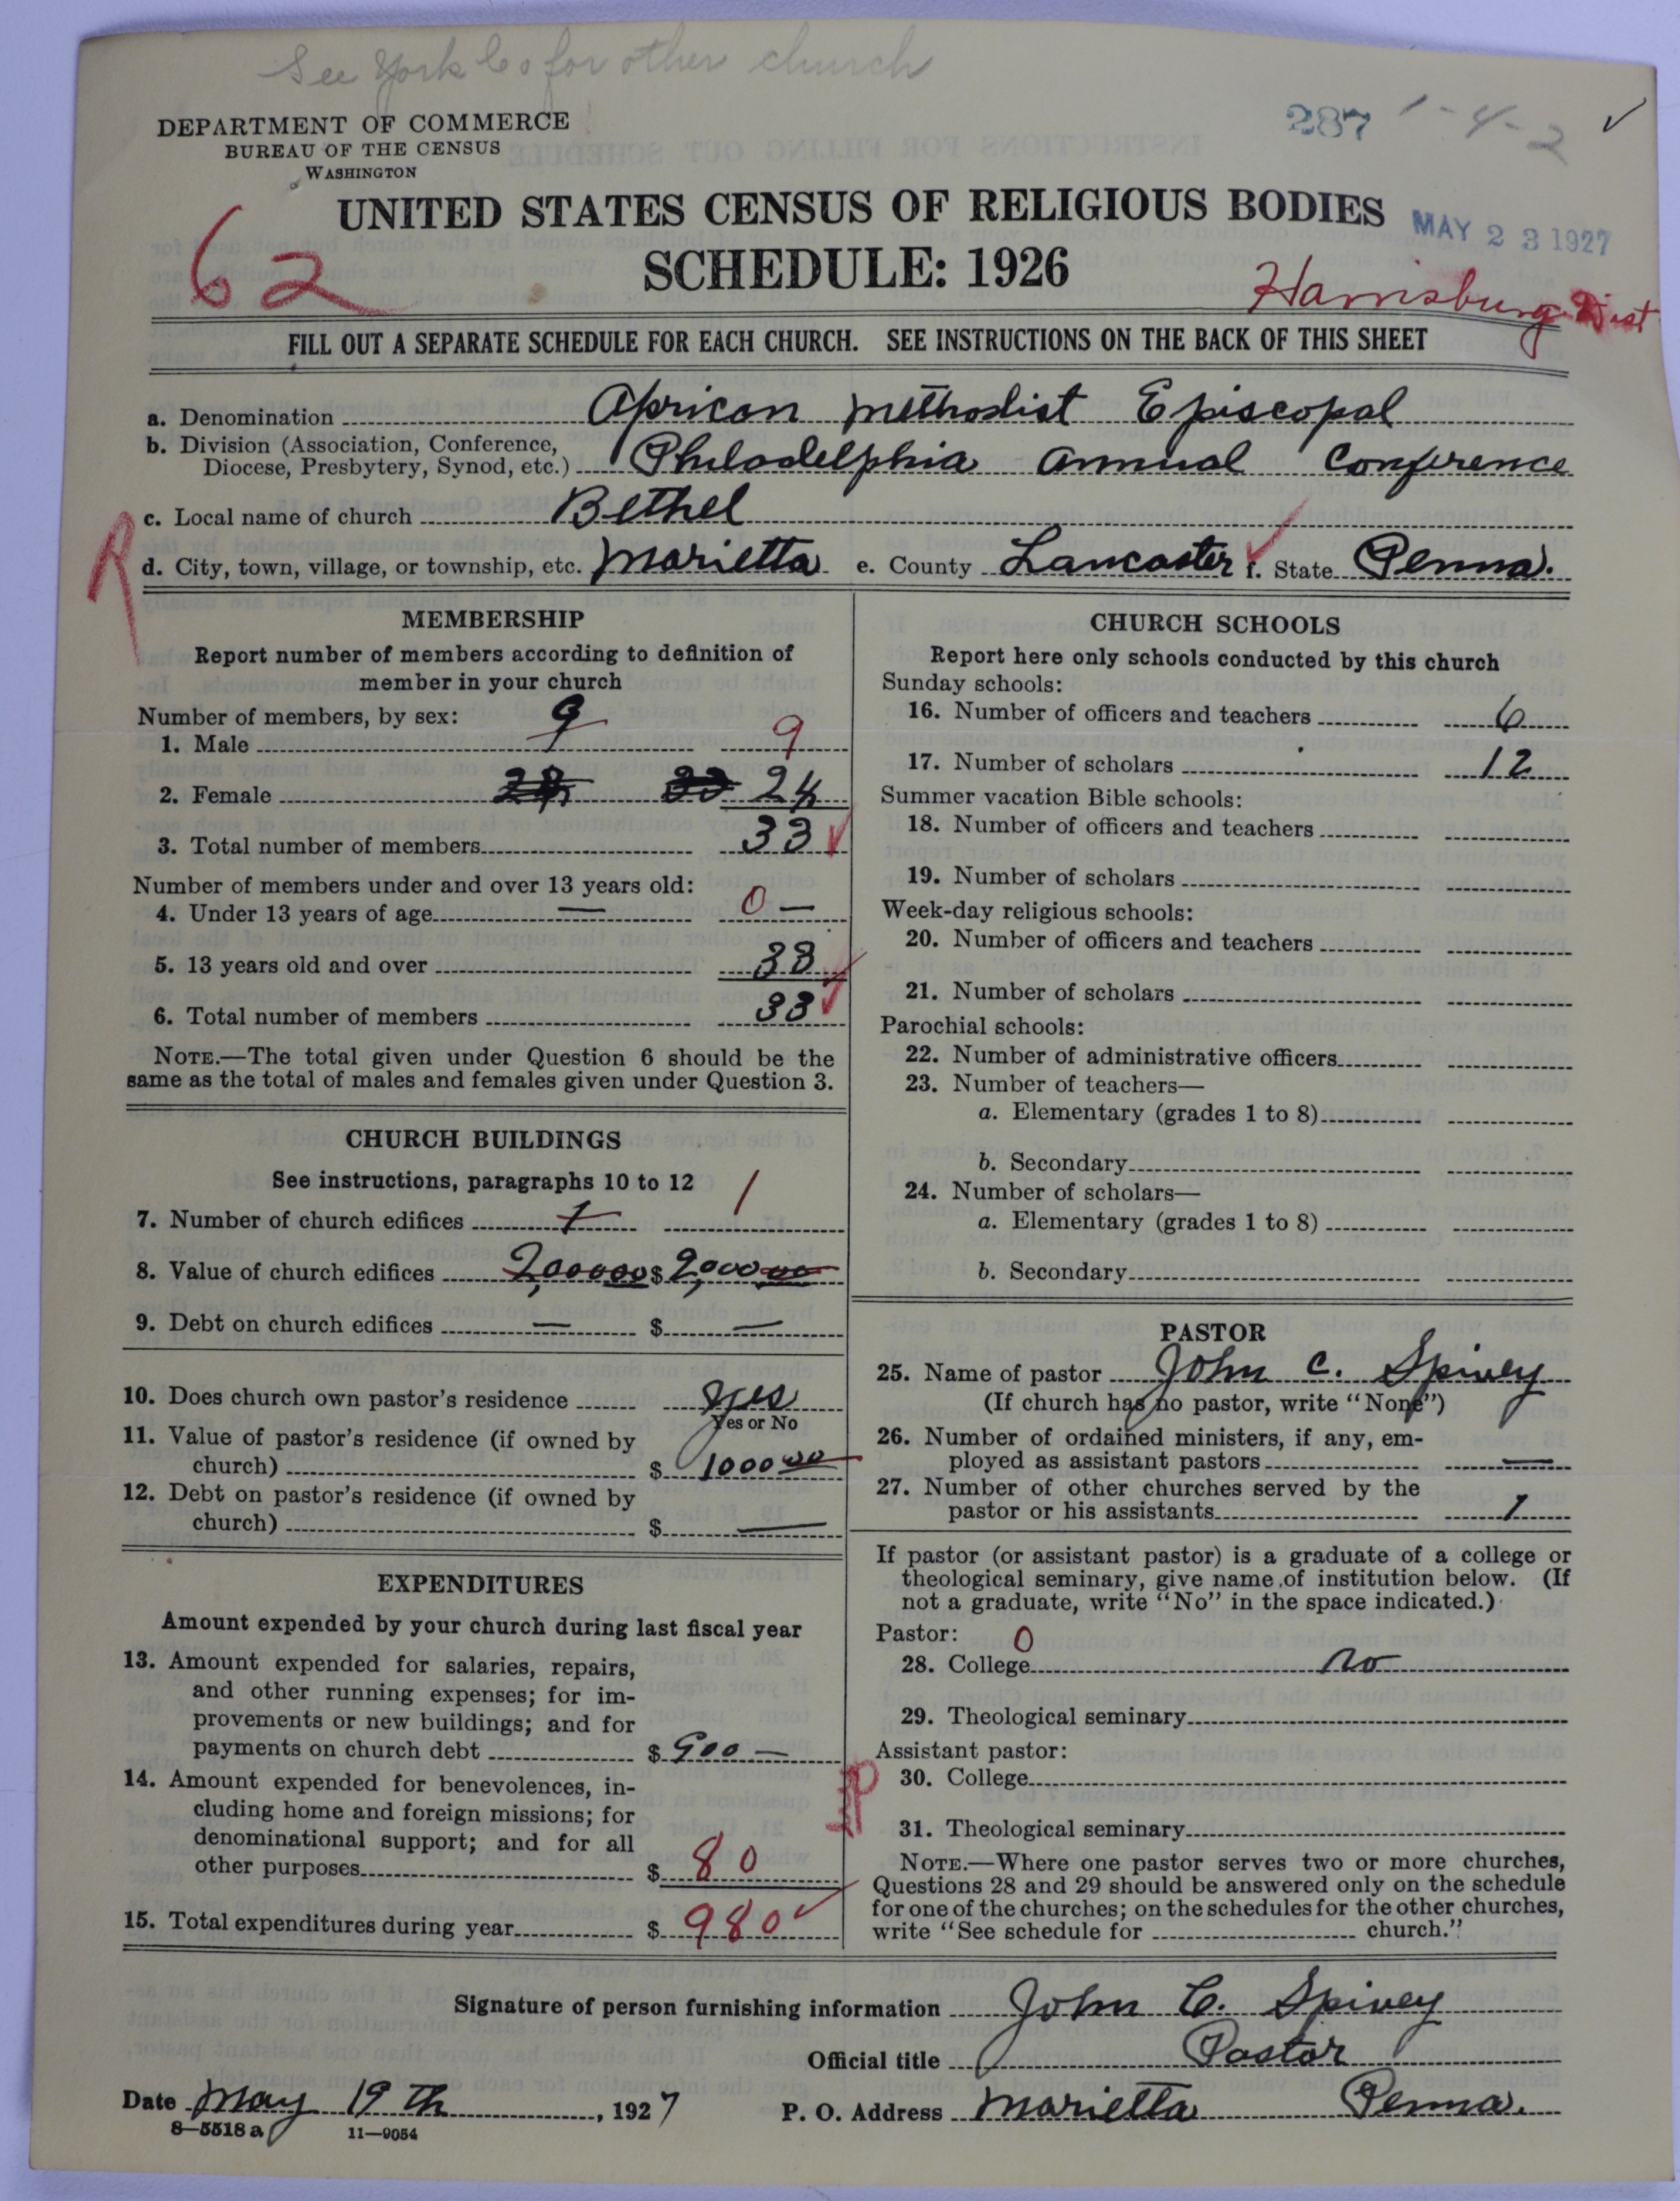 See York Co for other church
DEPARTMENT OF COMMERCE
BUREAU OF THE CENSUS
WASHINGTON
287 1-4-2 ✓
UNITED STATES CENSUS OF RELIGIOUS BODIES
MAY 23 1927
62
SCHEDULE: 1926
Harrisburg Dist
FILL OUT A SEPARATE SCHEDULE FOR EACH CHURCH. SEE INSTRUCTIONS ON THE BACK OF THIS SHEET
a. Denomination African Methodist Episcopal
b. Division (Association, Conference,
Diocese, Presbytery, Synod, etc.) Philadelphia Annual Conference
c. Local name of church Bethel
R
d. City, town, village, or township, etc. Marietta e. County Lancaster f. State Penna.
MEMBERSHIP
Report number of members according to definition of
member in your church
Number of members, by sex: 9
1. Male 9
2. Female 24
3. Total number of members 33
Number of members under and over 13 years old:
4. Under 13 years of age — 0 —
5. 13 years old and over 33
6. Total number of members 33
NOTE.—The total given under Question 6 should be the
same as the total of males and females given under Question 3.
CHURCH BUILDINGS
See instructions, paragraphs 10 to 12
7. Number of church edifices 1 1
8. Value of church edifices 2,00000 $ 2,00000
9. Debt on church edifices — $ —
10. Does church own pastor's residence yes
Yes or No
11. Value of pastor's residence (if owned by
church) $ 100000
12. Debt on pastor's residence (if owned by
church) $ —
EXPENDITURES
Amount expended by your church during last fiscal year
13. Amount expended for salaries, repairs,
and other running expenses; for im-
provements or new buildings; and for
payments on church debt $ 900 —
14. Amount expended for benevolences, in-
cluding home and foreign missions; for
denominational support; and for all
other purposes $ 80
15. Total expenditures during year $ 980
CHURCH SCHOOLS
Report here only schools conducted by this church
Sunday schools:
16. Number of officers and teachers 6
17. Number of scholars 12
Summer vacation Bible schools:
18. Number of officers and teachers
19. Number of scholars
Week-day religious schools:
20. Number of officers and teachers
21. Number of scholars
Parochial schools:
22. Number of administrative officers
23. Number of teachers—
a. Elementary (grades 1 to 8)
b. Secondary
24. Number of scholars—
a. Elementary (grades 1 to 8)
b. Secondary
PASTOR
25. Name of pastor John C. Spivey
(If church has no pastor, write "None")
26. Number of ordained ministers, if any, em-
ployed as assistant pastors —
27. Number of other churches served by the
pastor or his assistants 1
If pastor (or assistant pastor) is a graduate of a college or
theological seminary, give name of institution below. (If
not a graduate, write "No" in the space indicated.)
Pastor: 0
28. College no
29. Theological seminary
Assistant pastor:
30. College
31. Theological seminary
NOTE.—Where one pastor serves two or more churches,
Questions 28 and 29 should be answered only on the schedule
for one of the churches; on the schedules for the other churches,
write "See schedule for church."
Signature of person furnishing information John C. Spivey
Official title Pastor
Date May 19th, 1927 P. O. Address Marietta Penna.
8—5518 a 11—9054